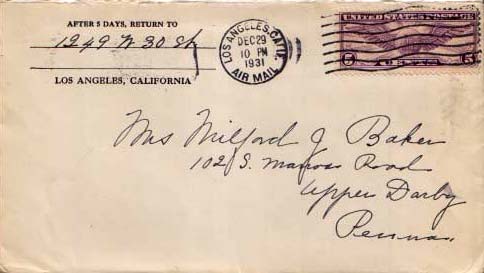 AFTER 5 DAYS, RETURN TO
1249 W 30 St
LOS ANGELES, CALIFORNIA
LOS ANGELES, CALIF.
DEC 29
10 PM
1931
AIR MAIL
UNITED STATES POSTAGE
5 CENTS 5
Mrs Milford J Baker
102 S. Road
Upper Darby
Penna